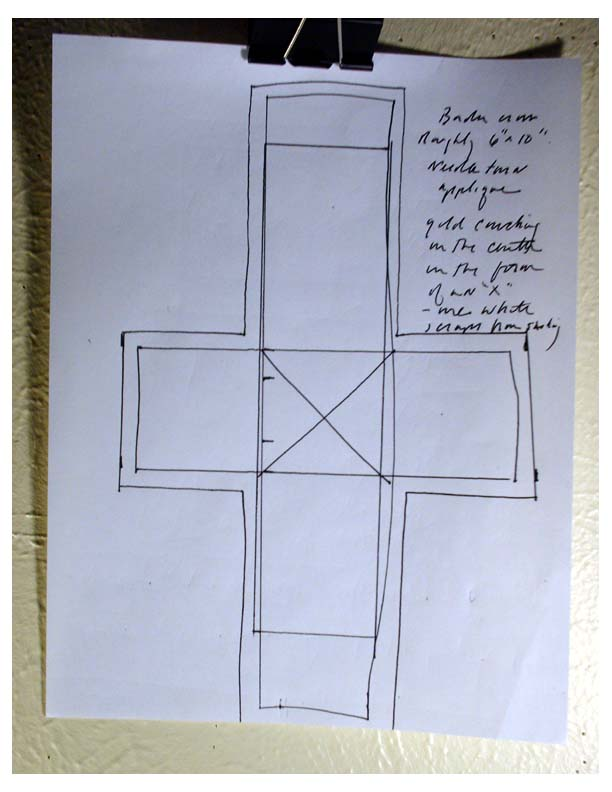 roughly 6" x 10"
Needle turn
applique
gold couching
in the center
in the form
of an "X"
- use white
scraps from